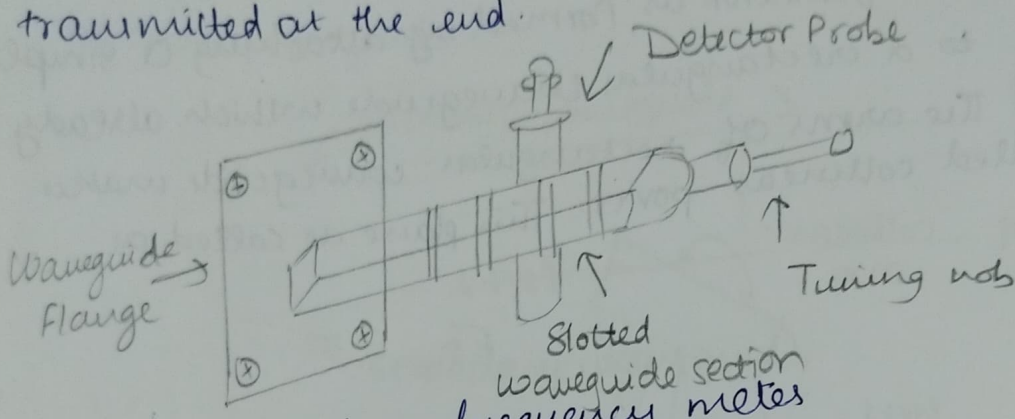 transmitted at the end.
Detector Probe
Waveguide
Flange
Tuning nob
Slotted
waveguide section
frequency meter